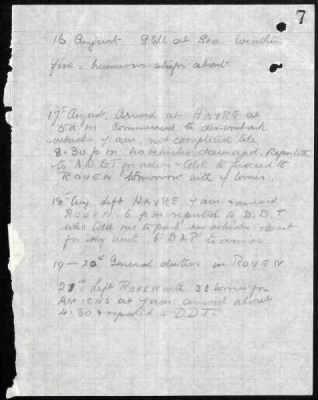 7
16 August Still at Sea. Weather
fine, numerous ships about
17th August. Arrived at HAVRE at
5 a.m. commenced to disembark
vehicles 7 am, not completed till
8.30 p.m. no vehicles damaged. Reported
to A.D.D.T orders told to proceed to
ROUEN tomorrow with lorries.
18th Aug. left HAVRE 7 am arrived
ROUEN 6 p.m. reported to D.D.T
who told me to park my vehicles & wait
for my unit to arrive
19 - 20th General duties in ROUEN.
21st Left ROUEN with 30 lorries for
AMIENS at 7 am arrived about
4.30 & reported to D.D.T.